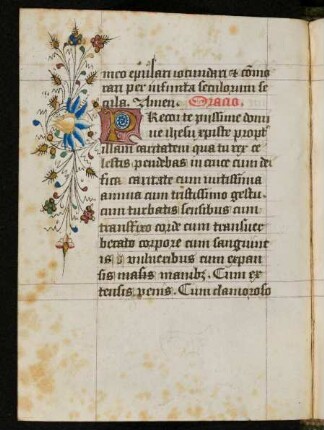 meo epulari iocundari & cōmo
rari per infinita seculorum se
cula. Amen. Oracio.
PRecor te piissime domi
ne ihesu xpiste propt
illam caritatem qua tu rex ce
lestis pendebas in cruce cum dei
fica caritate cum mitissima
anima cum tristissimo gestu.
cum turbatis sensibus cum
transfixo corde cum transuer
berato corpore cum sanguine
is vulneribus cum expan
sis manibꝫ. Cum ex
tensis venis. Cum clamoroso